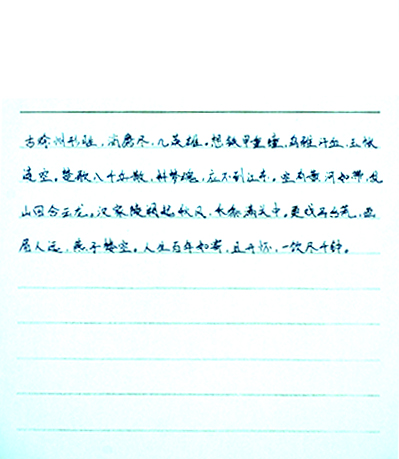 古徐州形胜,消磨尽,几英雄。想铁甲重瞳,乌骓汗血,玉帐
连空。楚歌八千兵散,料梦魂,应不到江东。空有黄河如带,乱
山回合云龙。汉家陵阙起秋风,禾黍满关中。更戏马台荒,画
眉人远,燕子楼空。人生百年如寄,且开怀,一饮尽千钟。